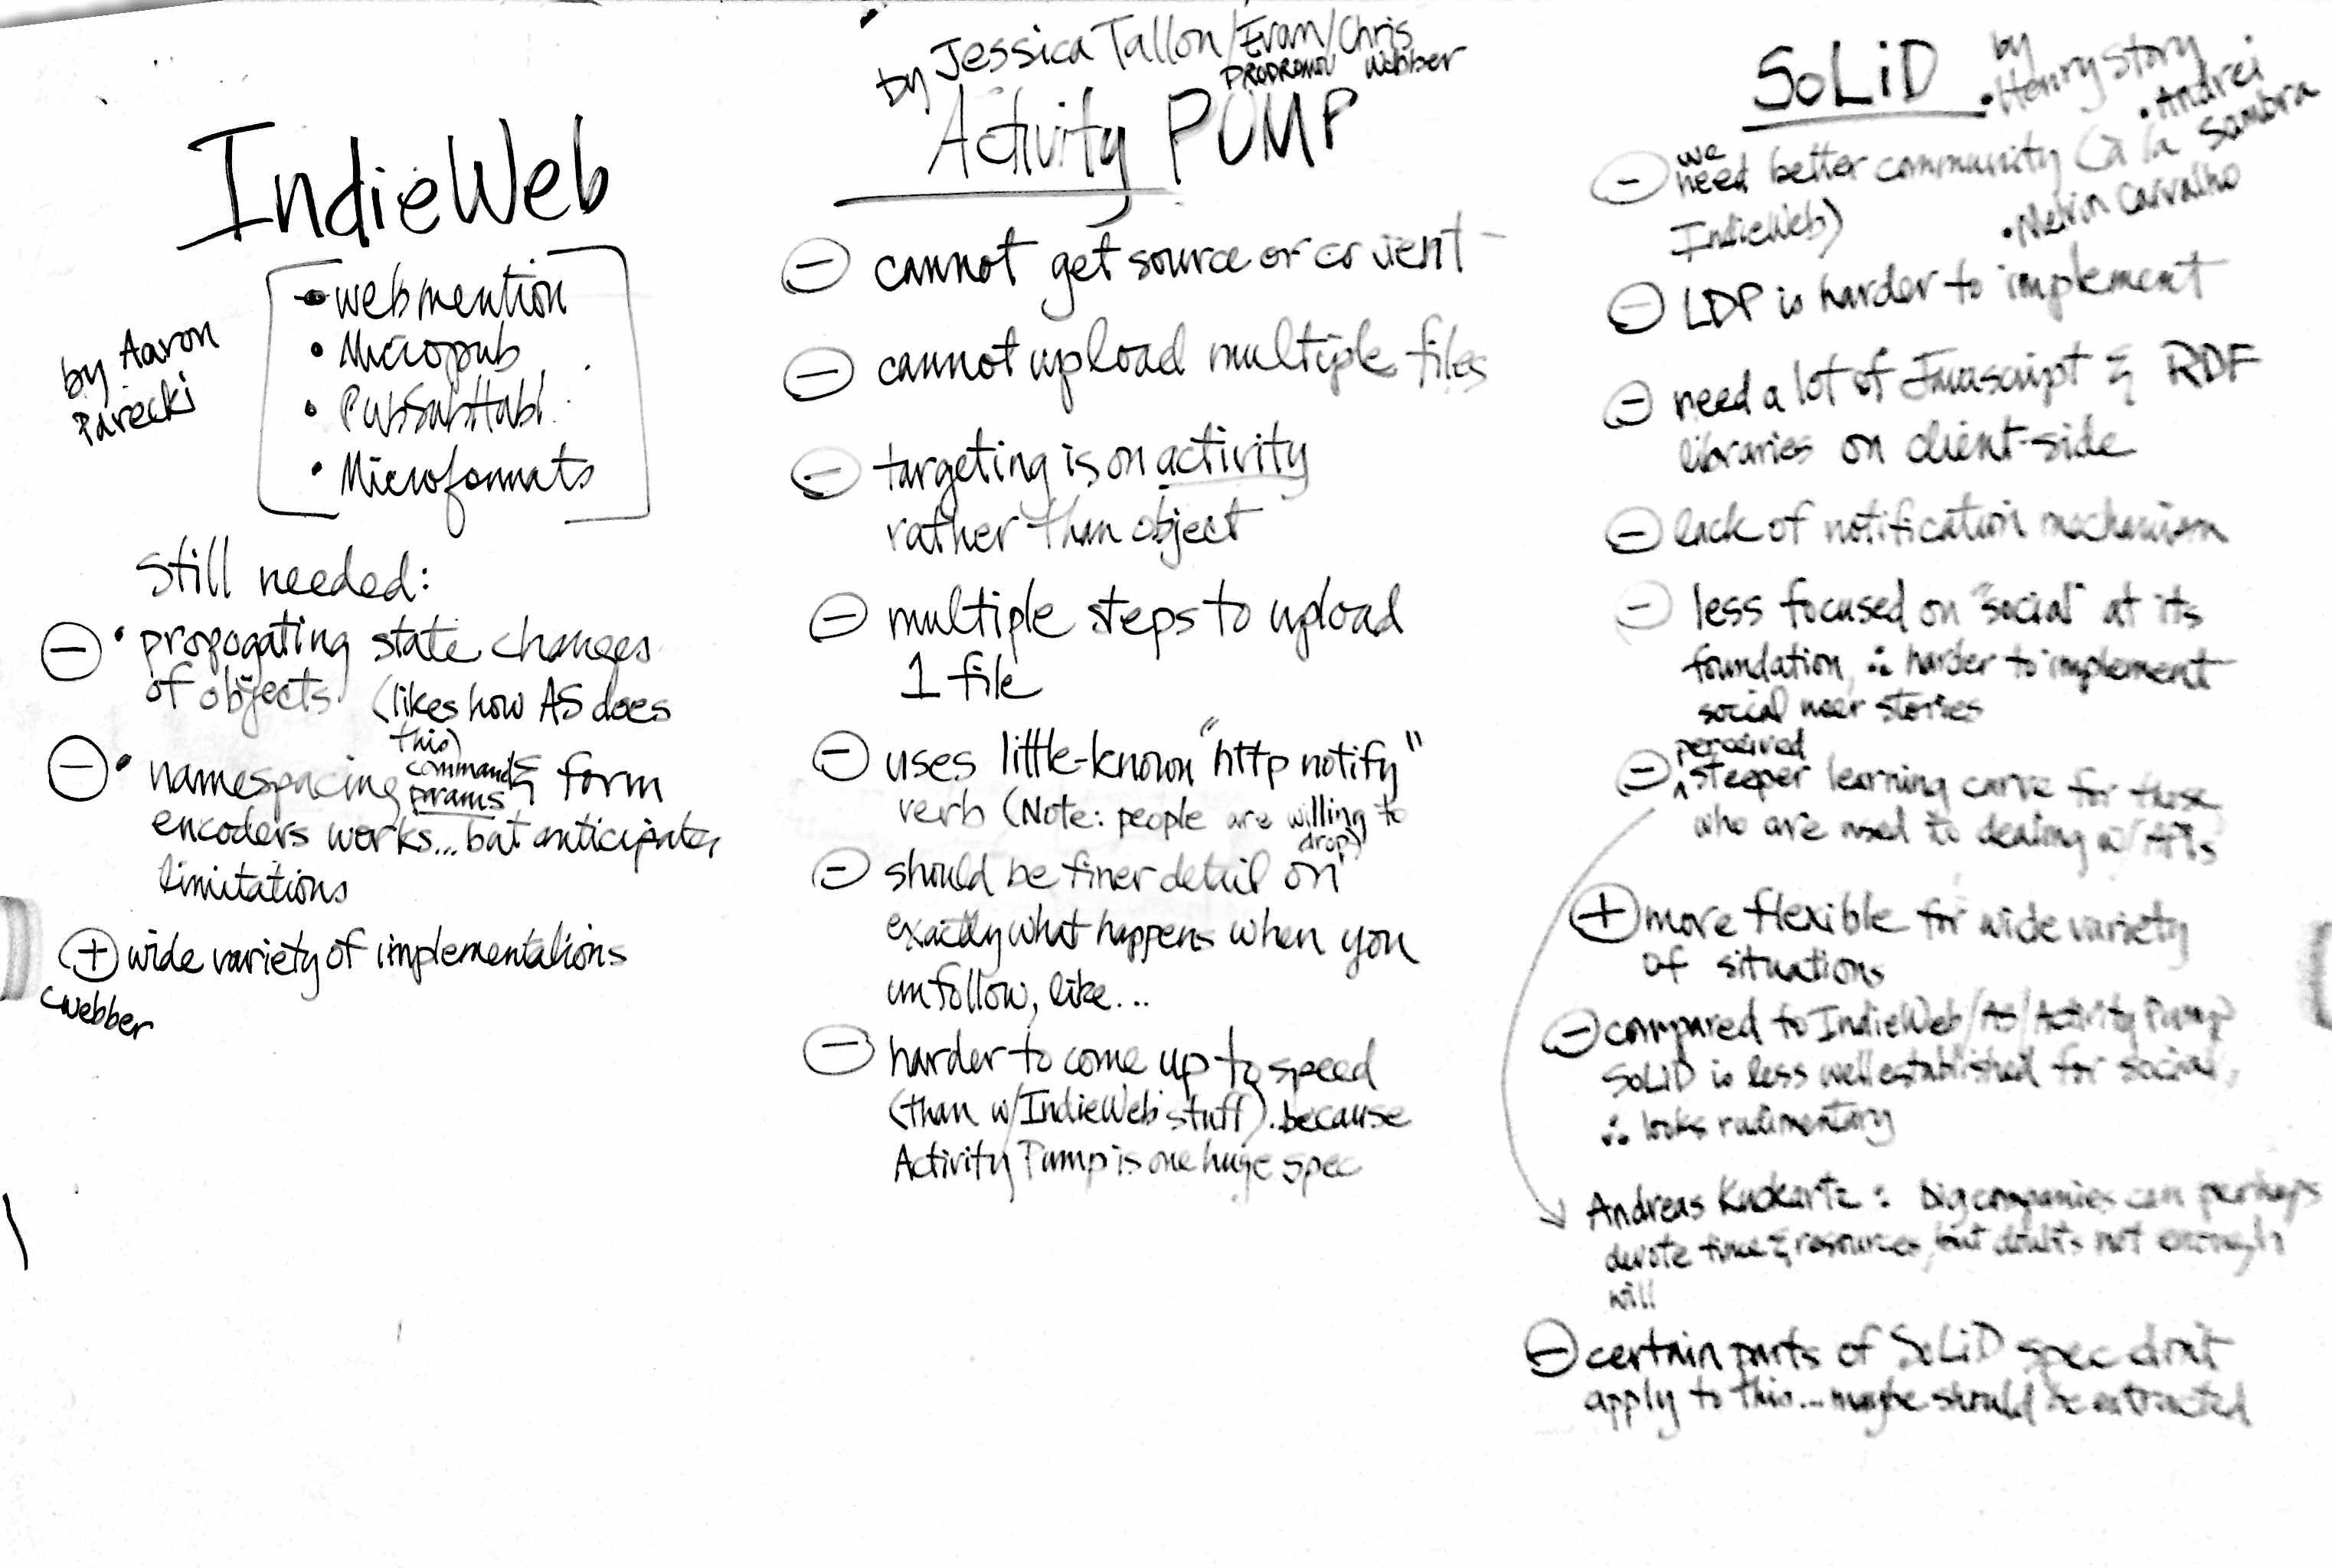 IndieWeb
by Aaron
Parecki
• webmention
• Micropub
• PubSubHubb
• Microformats
Still needed:
⊖ • propogating state changes
of objects (likes how AS does
this)
⊖ • namespacing commands & form
params
encoders works... but anticipates
limitations
⊕ wide variety of implementations
cwebber
by Jessica Tallon/Evan/Chris
PRODROMOU Webber
Activity PUMP
⊖ cannot get source or
⊖ cannot upload multiple files
⊖ targeting is on activity
rather than object
⊖ multiple steps to upload
1 file
⊖ uses little-known "http notify"
verb (Note: people are willing to
drop)
⊖ should be finer detail on
exactly what happens when you
unfollow, like...
⊖ harder to come up to speed
(than w/IndieWeb stuff) because
Activity Pump is one huge spec
SoLiD by
• Henry Story
• Andrei
Sambra
• Melvin Carvalho
⊖ we need better community (a la
IndieWeb)
⊖ LDP is harder to implement
⊖ need a lot of Javascript & RDF
libraries on client-side
⊖ lack of notification mechanism
⊖ less focused on "social" at its
foundation, ∴ harder to implement
social user stories
perceived
⊖ ^ steeper learning curve for those
who are used to dealing w/ APIs
⊕ more flexible for wide variety
of situations
⊖ compared to IndieWeb/AS/Activity Pump
SoLiD is less well established for social,
∴ looks rudimentary
Andreas Kuckartz: big companies can perhaps
devote time & resources, but doubts not enough
will
⊖ certain parts of SoLiD spec don't
apply to this... maybe should be extracted